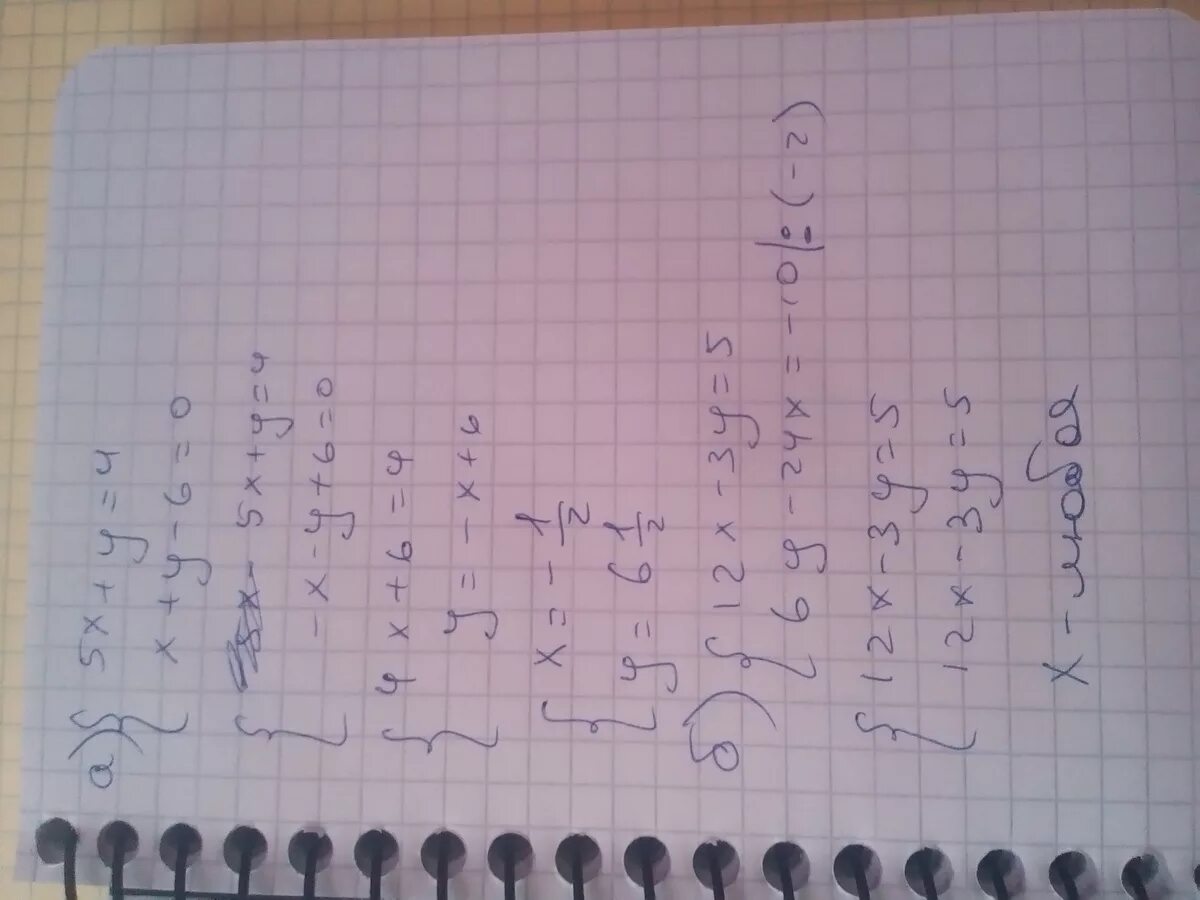 а) { 5x + y = 4
x + y - 6 = 0
{ 5x + y = 4
- x - y + 6 = 0
{ 4x + 6 = 4
y = - x + 6
{ x = - 1/2
y = 6 1/2
б) { 12x - 3y = 5
6y - 24x = -10 |: (-2)
{ 12x - 3y = 5
12x - 3y = 5
x - любая